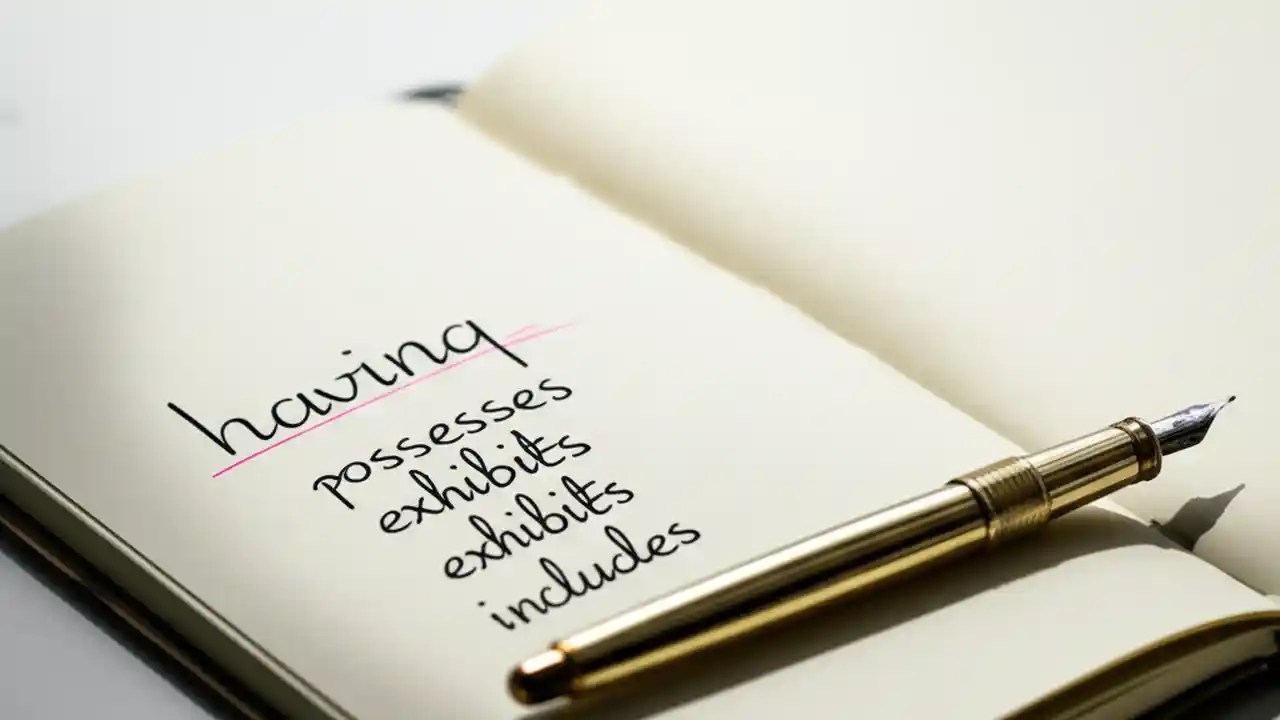 having
possesses
exhibits
exhibits
includes